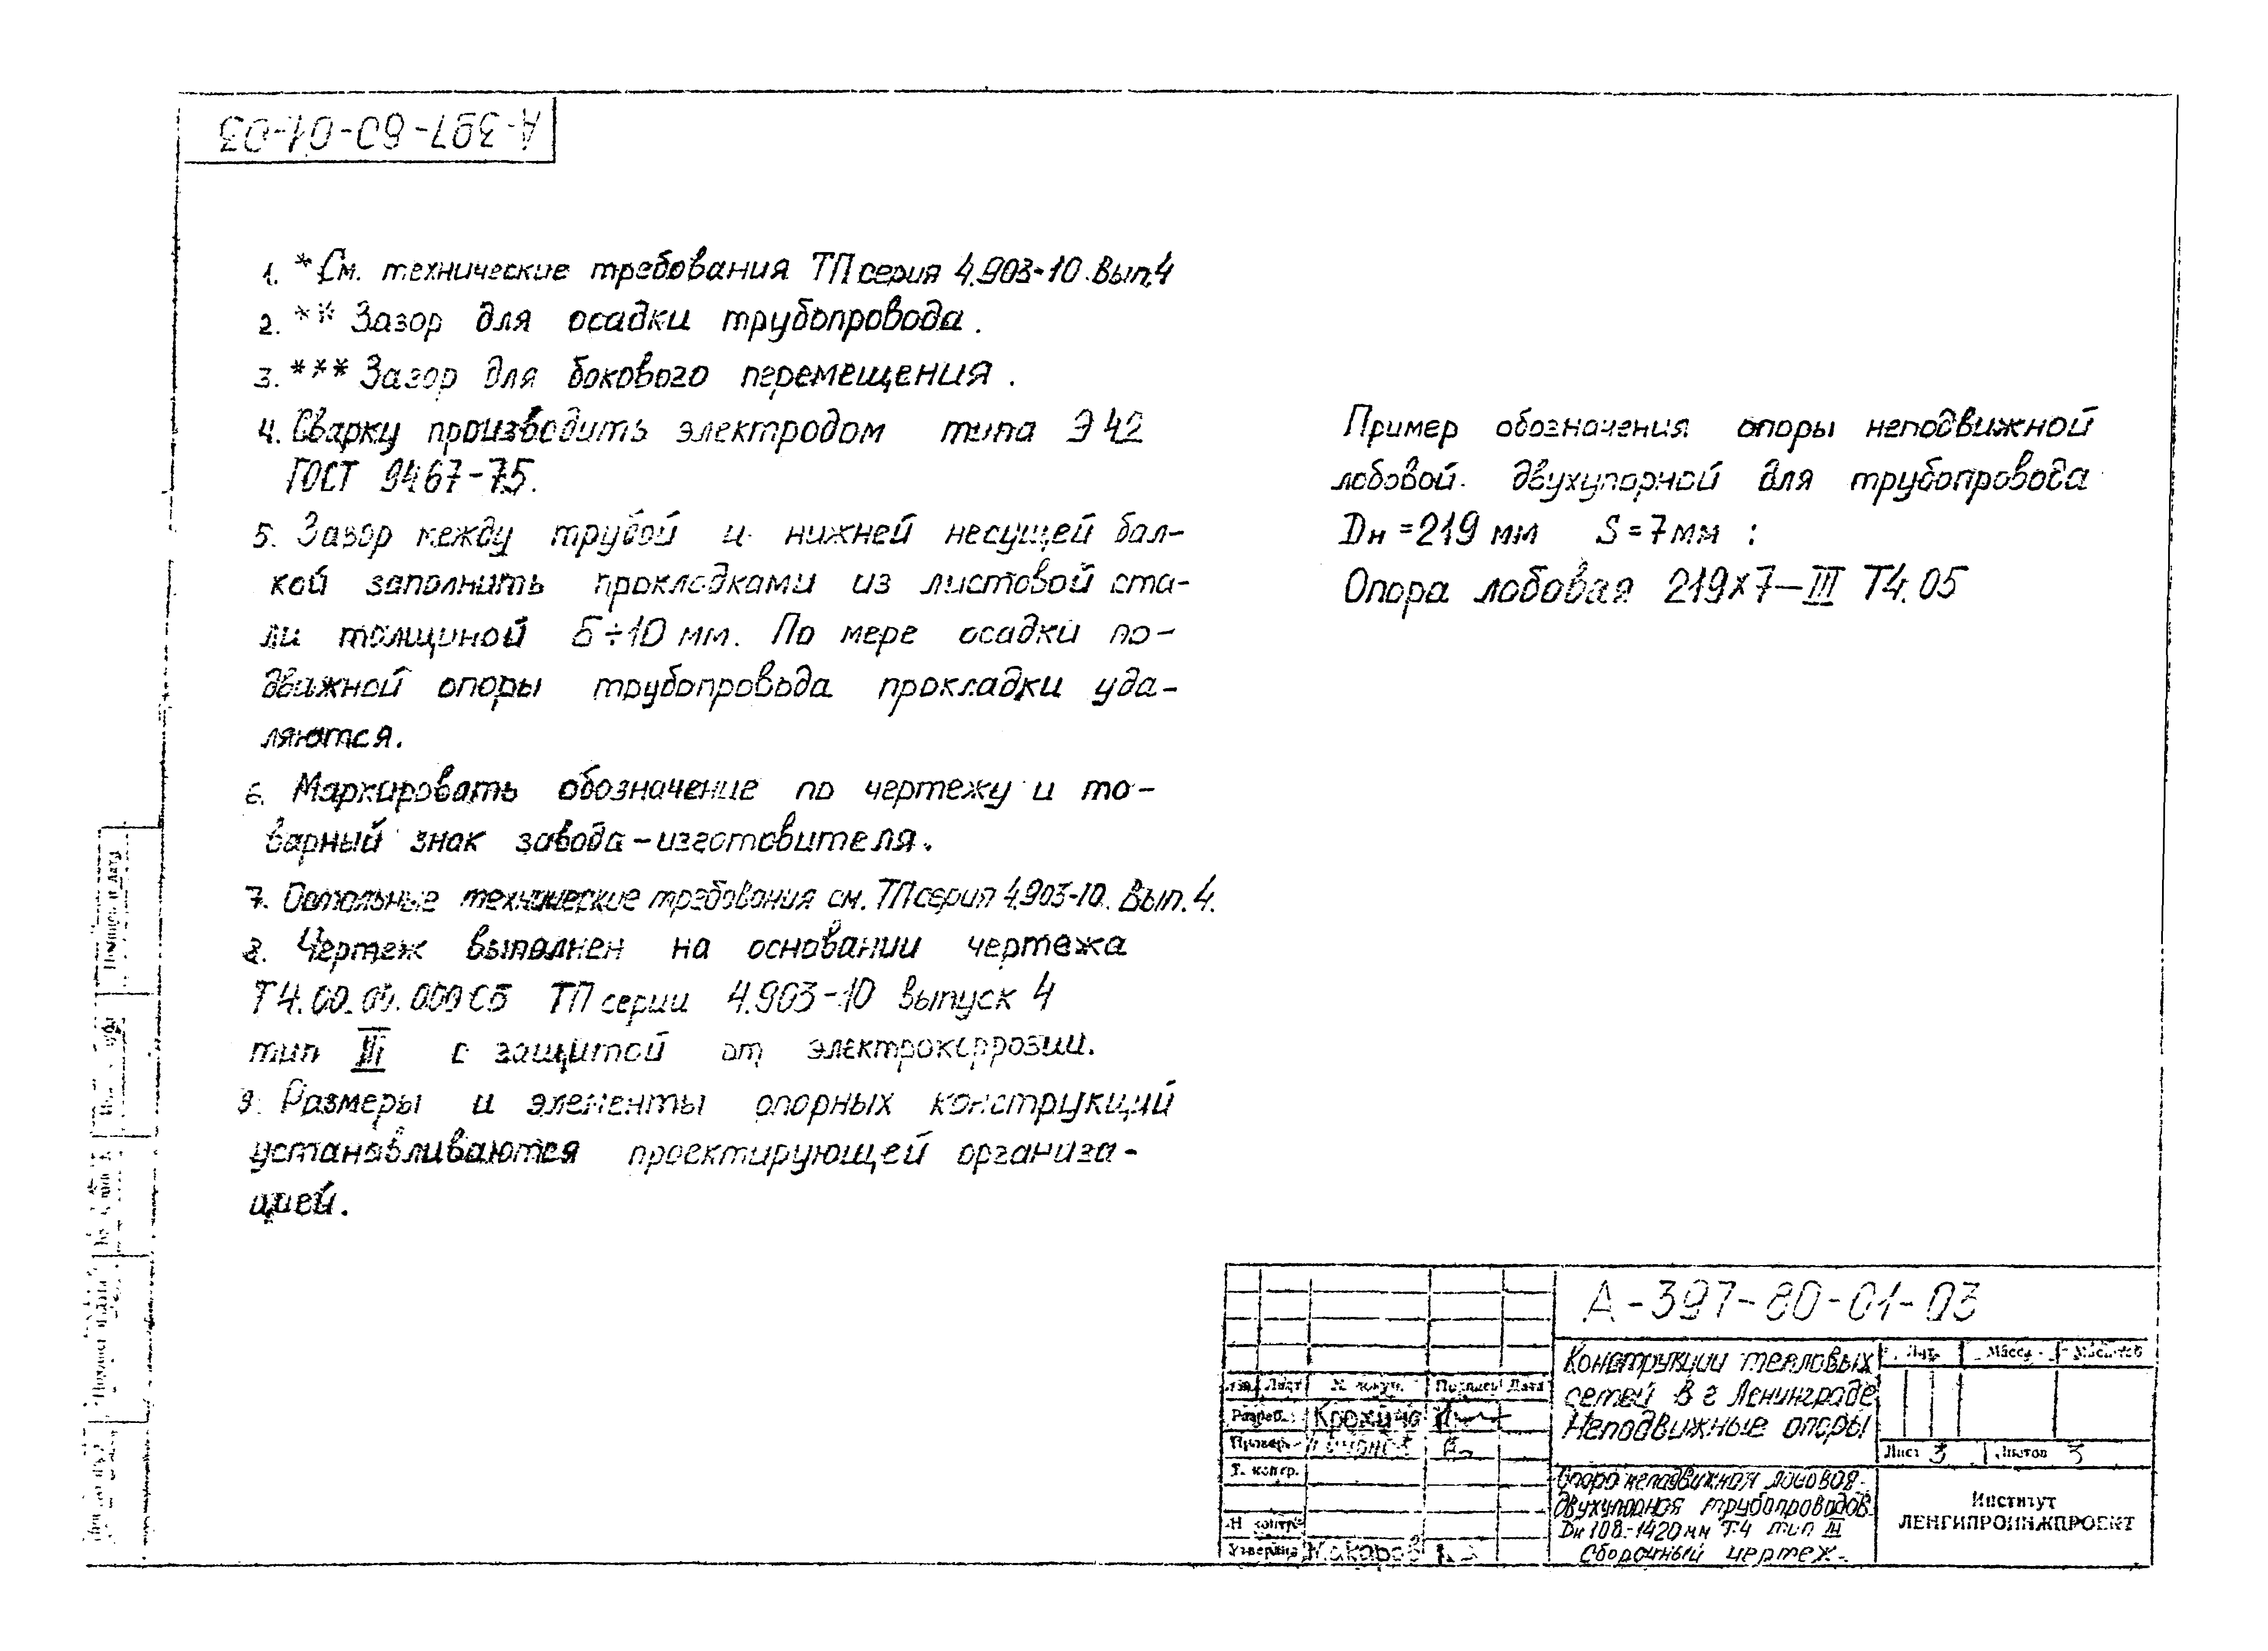 А-397-80-01-03
1. *См. технические требования ТП серия 4.903-10. Вып.4
2. ** Зазор для осадки трубопровода.
3. *** Зазор для бокового перемещения.
4. Сварку производить электродом типа Э 42
ГОСТ 9467-75.
5. Зазор между трубой и нижней несущей бал-
кой заполнить прокладками из листовой ста-
ли толщиной 5÷10 мм. По мере осадки по-
движной опоры трубопровода прокладки уда-
ляются.
6. Маркировать обозначение по чертежу и то-
варный знак завода-изготовителя.
7. Остальные технические требования см. ТП серия 4.903-10. Вып. 4.
8. Чертеж выполнен на основании чертежа
Т4.00.00.000СБ ТП серии 4.903-10 выпуск 4
тип III с защитой от электрокоррозии.
9. Размеры и элементы опорных конструкций
устанавливаются проектирующей организа-
цией.
Пример обозначения опоры неподвижной
лобовой двухупорной для трубопровода
Dн = 219 мм S = 7 мм :
Опора лобовая 219х7-III Т4.05
А-397-80-01-03
Конструкции тепловых
сетей в г Ленинграде
Неподвижные опоры
Лит. Масса Масштаб
Лист 3 Листов 3
Изм. Лист № докум. Подпись Дата
Разраб.
Провер.
Т. контр.
Н. контр.
Утвердил Макаров
Опора неподвижная лобовая
двухупорная трубопроводов
Dн 108-1420 мм Т.4 тип III
Сборочный чертеж.
Институт
ЛЕНГИПРОИНЖПРОЕКТ